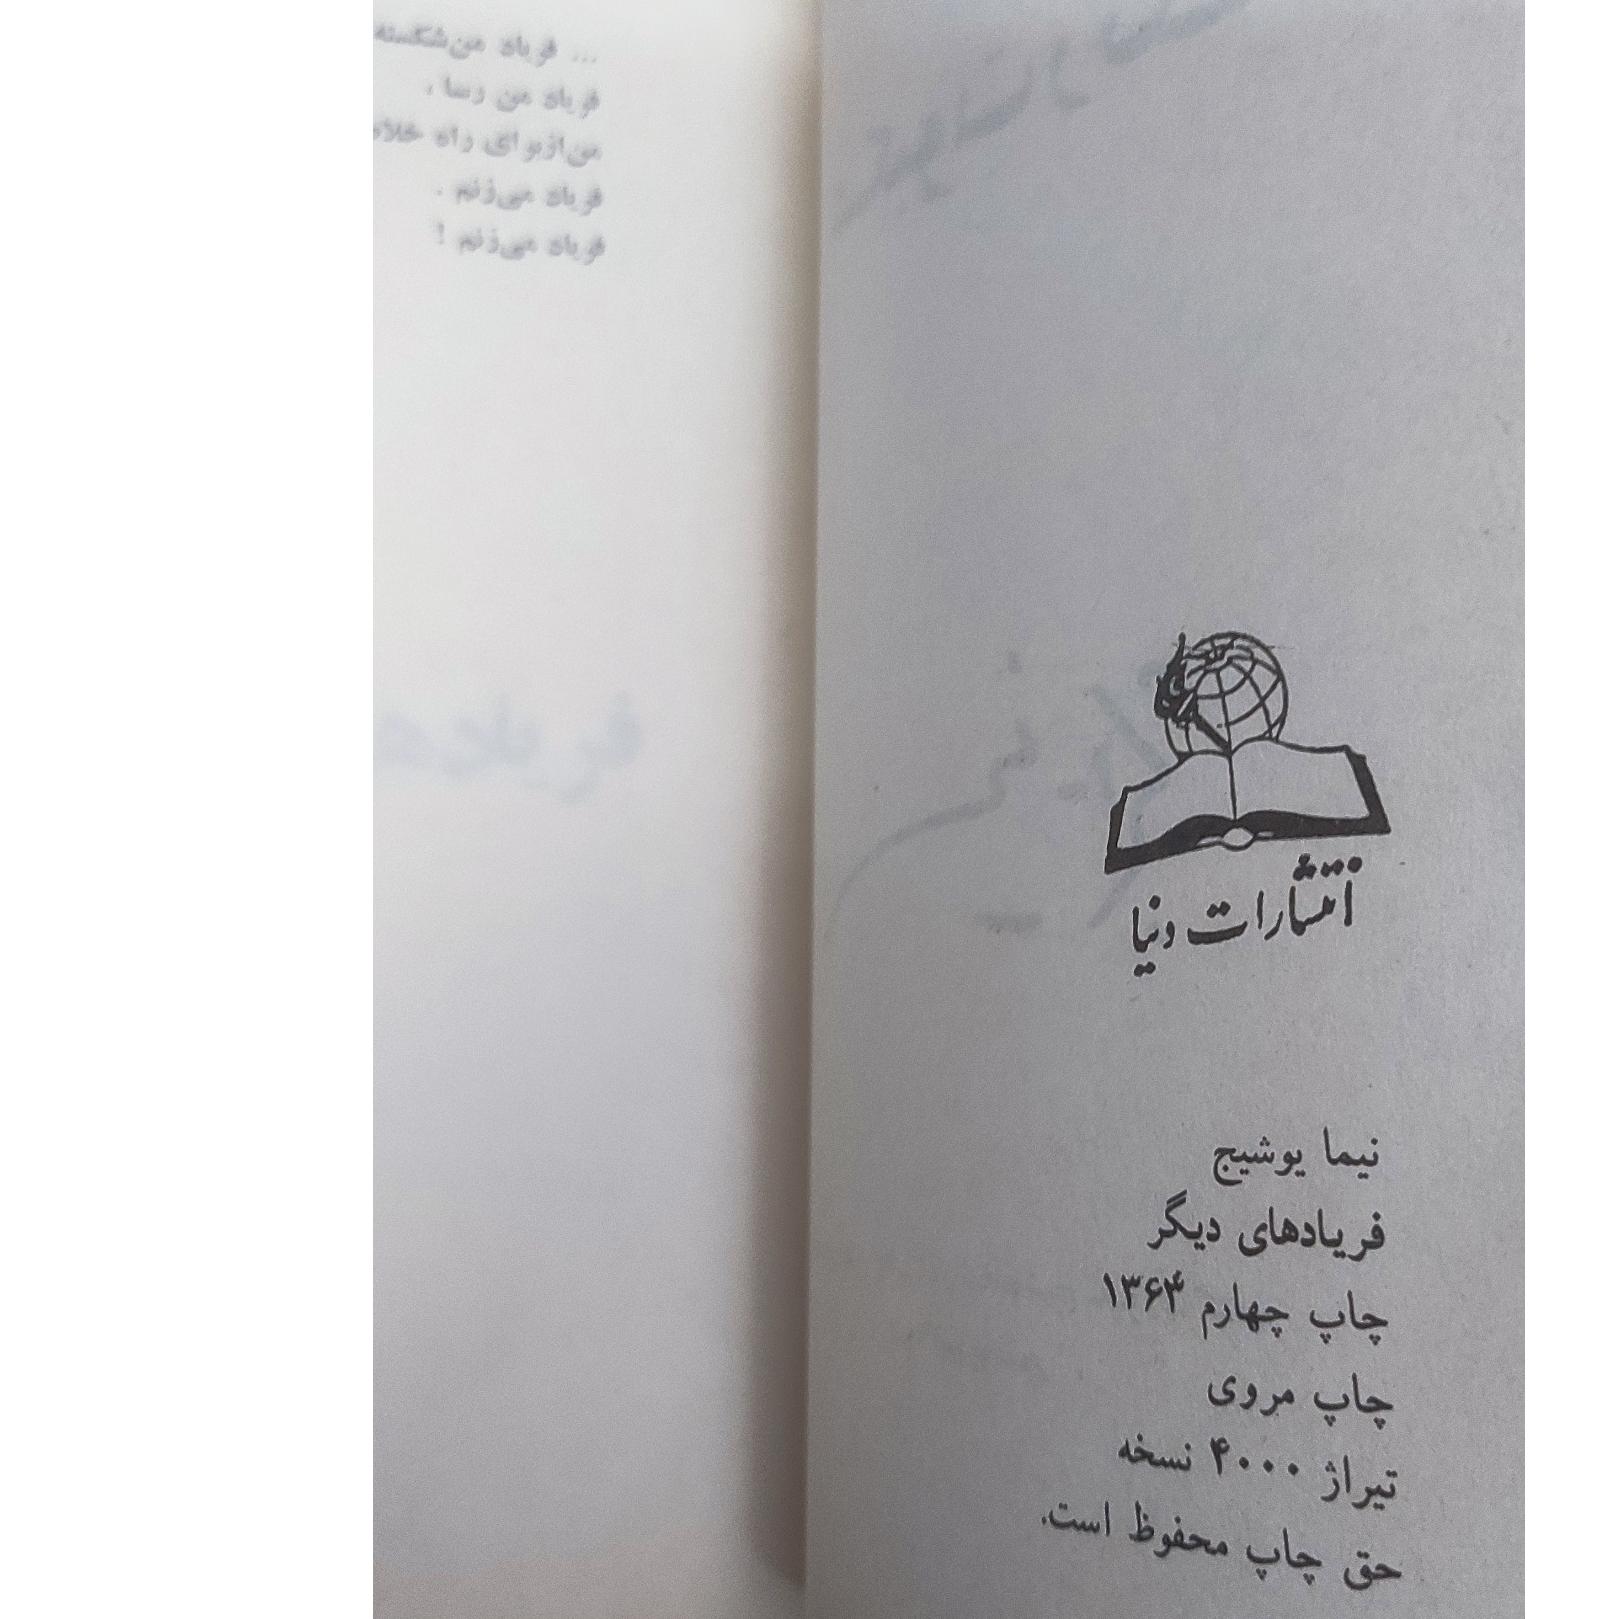 انتشارات دنیا
نیما یوشیج
فریادهای دیگر
چاپ چهارم ۱۳۶۴
چاپ مروی
تیراژ ۴۰۰۰ نسخه
حق چاپ محفوظ است.
... فریاد من شکسته
فریاد من رسا ،
من از برای راه خلاص
فریاد می‌زنم .
فریاد می‌زنم !